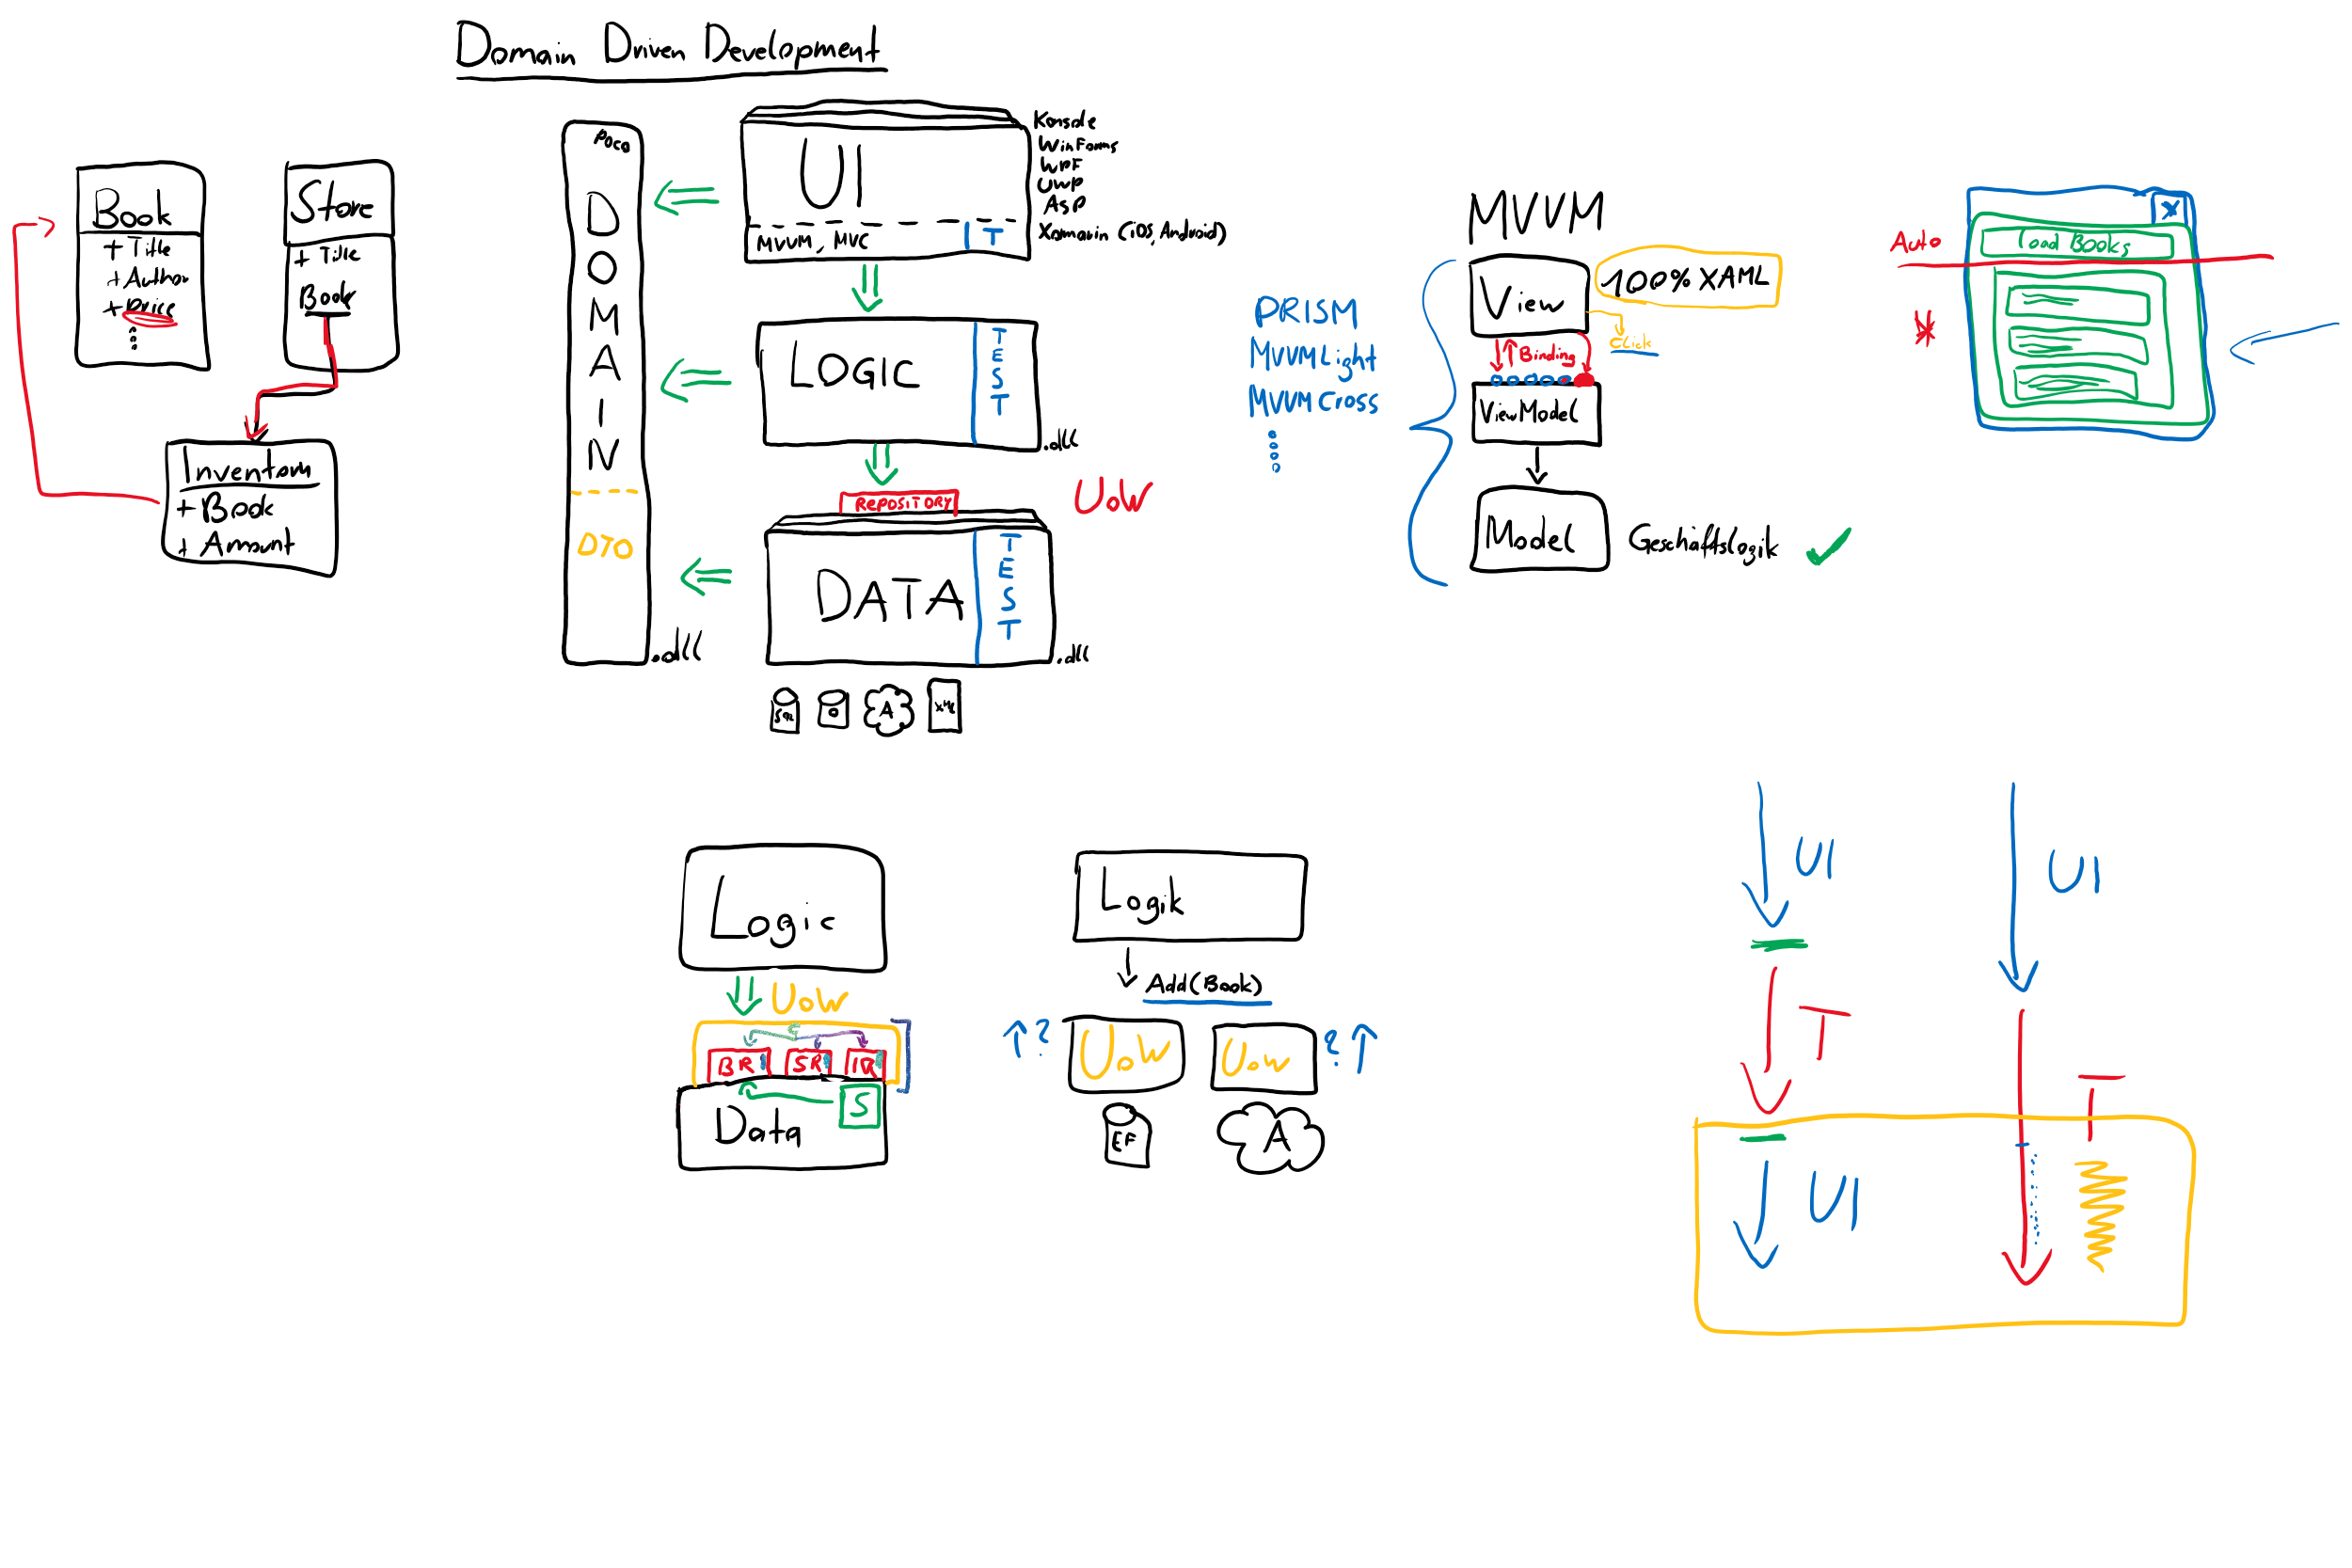 Domain Driven Development
Book
+ Title
+ Author
+ Price
Store
+ Title
Book
Inventory
+ Book
+ Amount
POCO
DOMAIN
DTO
.dll
UI
MVVM, MVC
T
Konsole
WinForms
WPF
UWP
ASP
Xamarin (iOS, Android)
LOGIC
TEST
.dll
REPOSITORY
UoW
DATA
TEST
.dll
SQL
O
A
XML
PRISM
MVVMLight
MVVMCross
MVVM
View
100% XAML
Click
Binding
ViewModel
Model
Geschäftslogik
X
Load Books
Auto
Logic
UoW
BR
SR
IR
S
Data
Logik
Add(Book)
?
UoW
UoW
?
EF
A
UI
T
UI
UI
T